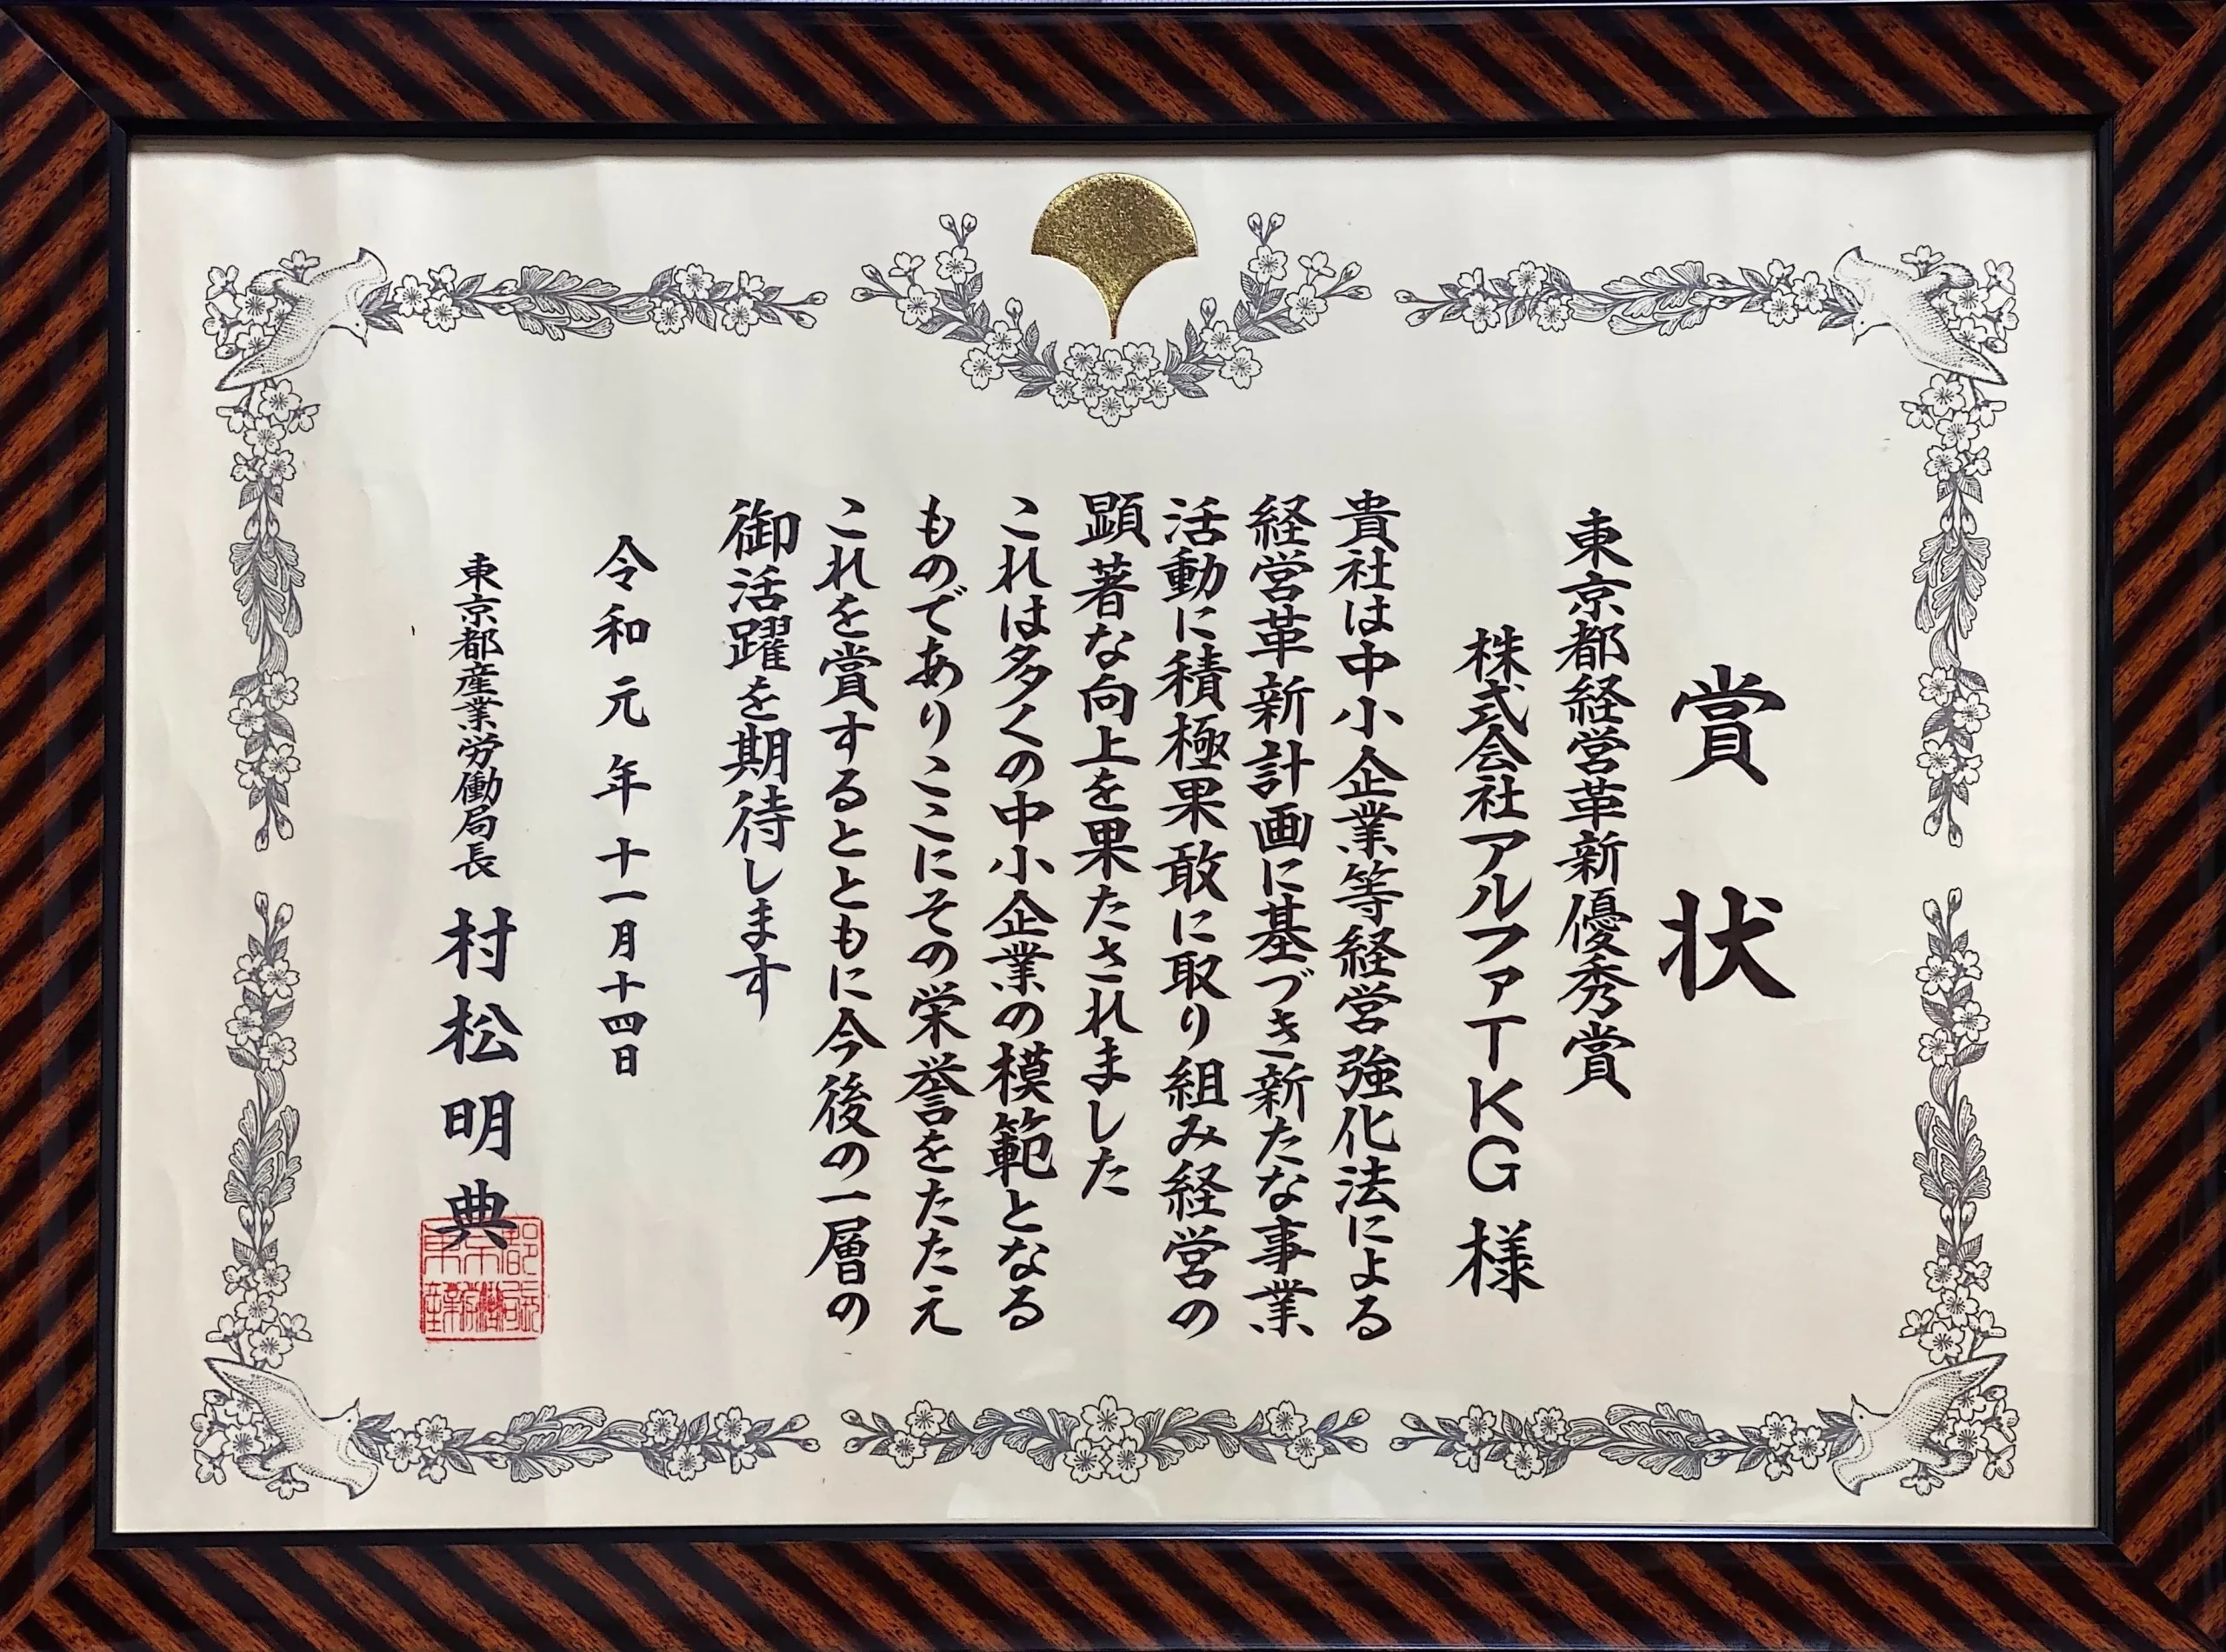 賞状
東京都経営革新優秀賞
株式会社アルファTKG 様
貴社は中小企業等経営強化法による
経営革新計画に基づき新たな事業
活動に積極果敢に取り組み経営の
顕著な向上を果たされました
これは多くの中小企業の模範となる
ものでありここにその栄誉をたたえ
これを賞するとともに今後の一層の
御活躍を期待します
令和元年十一月十四日
東京都産業労働局長 村松明典